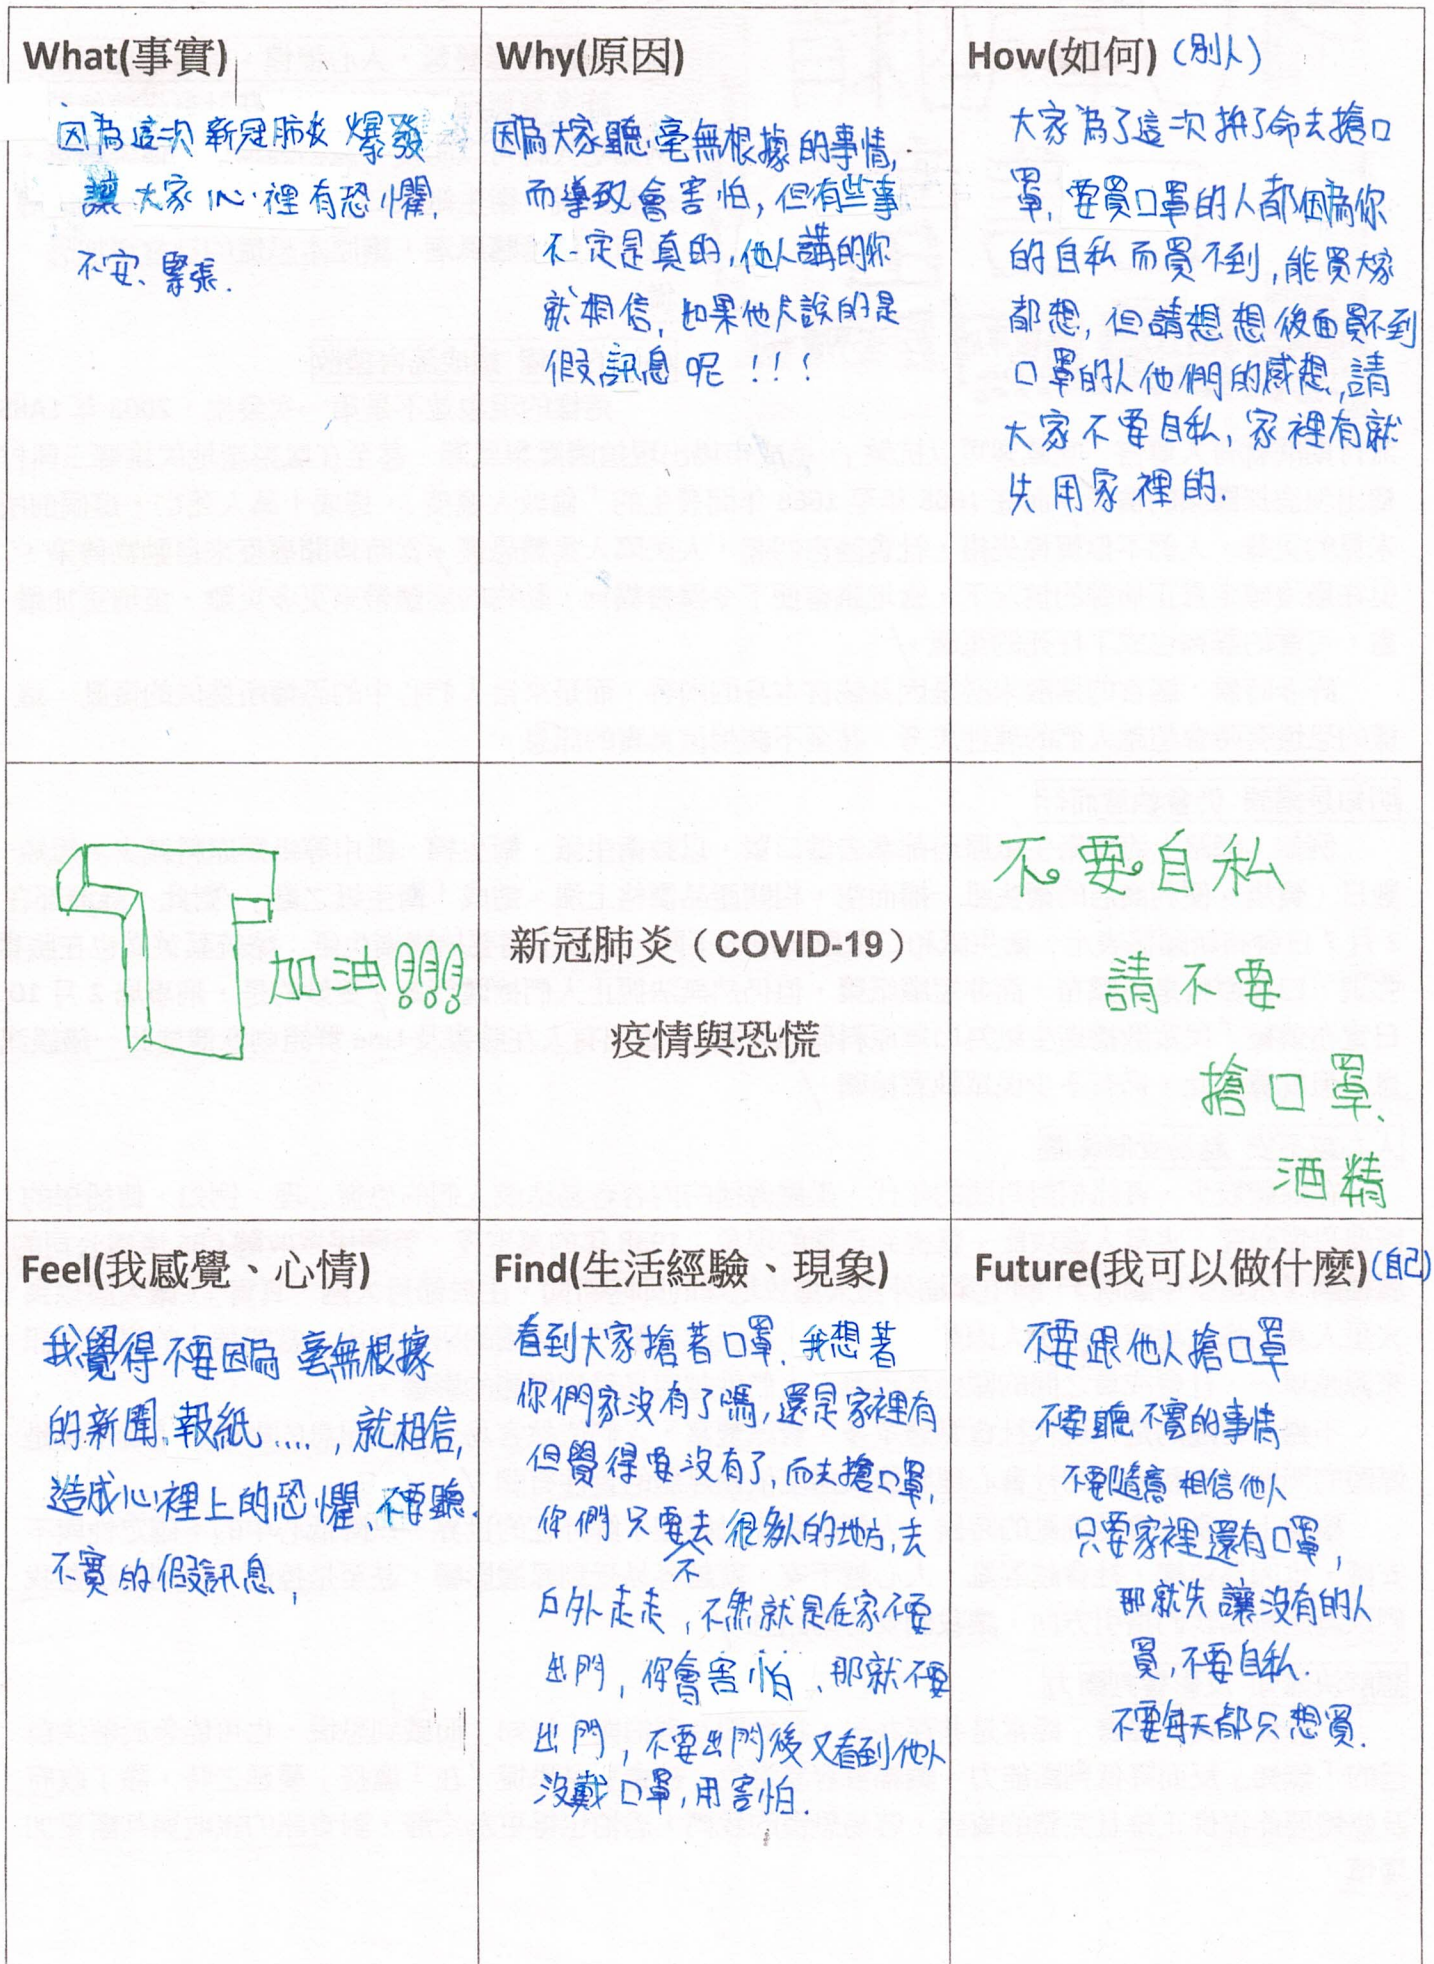 What(事實)
因為這次新冠肺炎爆發
讓大家心裡有恐懼、
不安、緊張.
Why(原因)
因為大家聽毫無根據的事情,
而導致會害怕,但有些事
不一定是真的,他人講的你
就相信,如果他人說的是
假訊息呢!!!
How(如何)(別人)
大家為了這次拚了命去搶口
罩,要買口罩的人都因為你
的自私而買不到,能買大家
都想,但請想想後面買不到
口罩的人他們的感想,請
大家不要自私,家裡有就
先用家裡的.
加油!!!
新冠肺炎(COVID-19)
疫情與恐慌
不要自私
請不要
搶口罩、
酒精
Feel(我感覺、心情)
我覺得不要因為毫無根據
的新聞、報紙....,就相信,
造成心裡上的恐懼、不要聽
不實的假訊息,
Find(生活經驗、現象)
看到大家搶著口罩、我想著
你們家沒有了嗎,還是家裡有
但覺得要沒有了,而去搶口罩,
你們只要不去很多人的地方,去
戶外走走,不然就是在家不要
出門,你會害怕、那就不要
出門,不要出門後又看到他人
沒戴口罩,用害怕.
Future(我可以做什麼)(自己)
不要跟他人搶口罩
不要聽不實的事情
不要隨意相信他人
只要家裡還有口罩,
那就先讓沒有的人
買,不要自私.
不要每天都只想買.